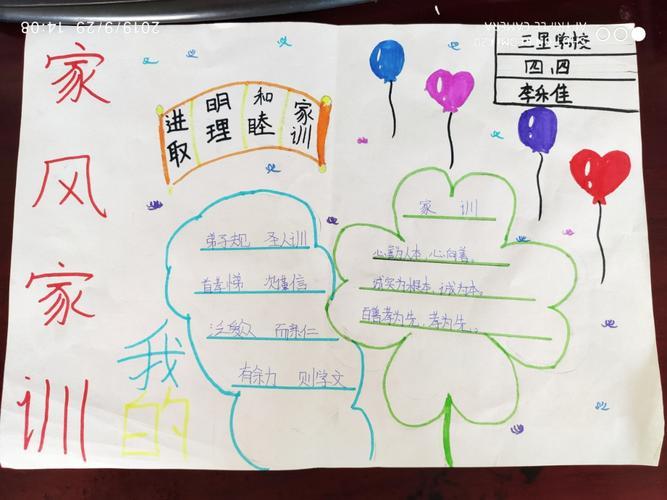 2019/9/29 14:08
家风家训
我的
家训
和睦
明理
进取
三星学校
四.四
李乐佳
弟子规 圣人训
首孝悌 次谨信
泛爱众 而亲仁
有余力 则学文
家 训
心善为人本,心向善。
诚实为根本,诚为本。
百善孝为先,孝为先。